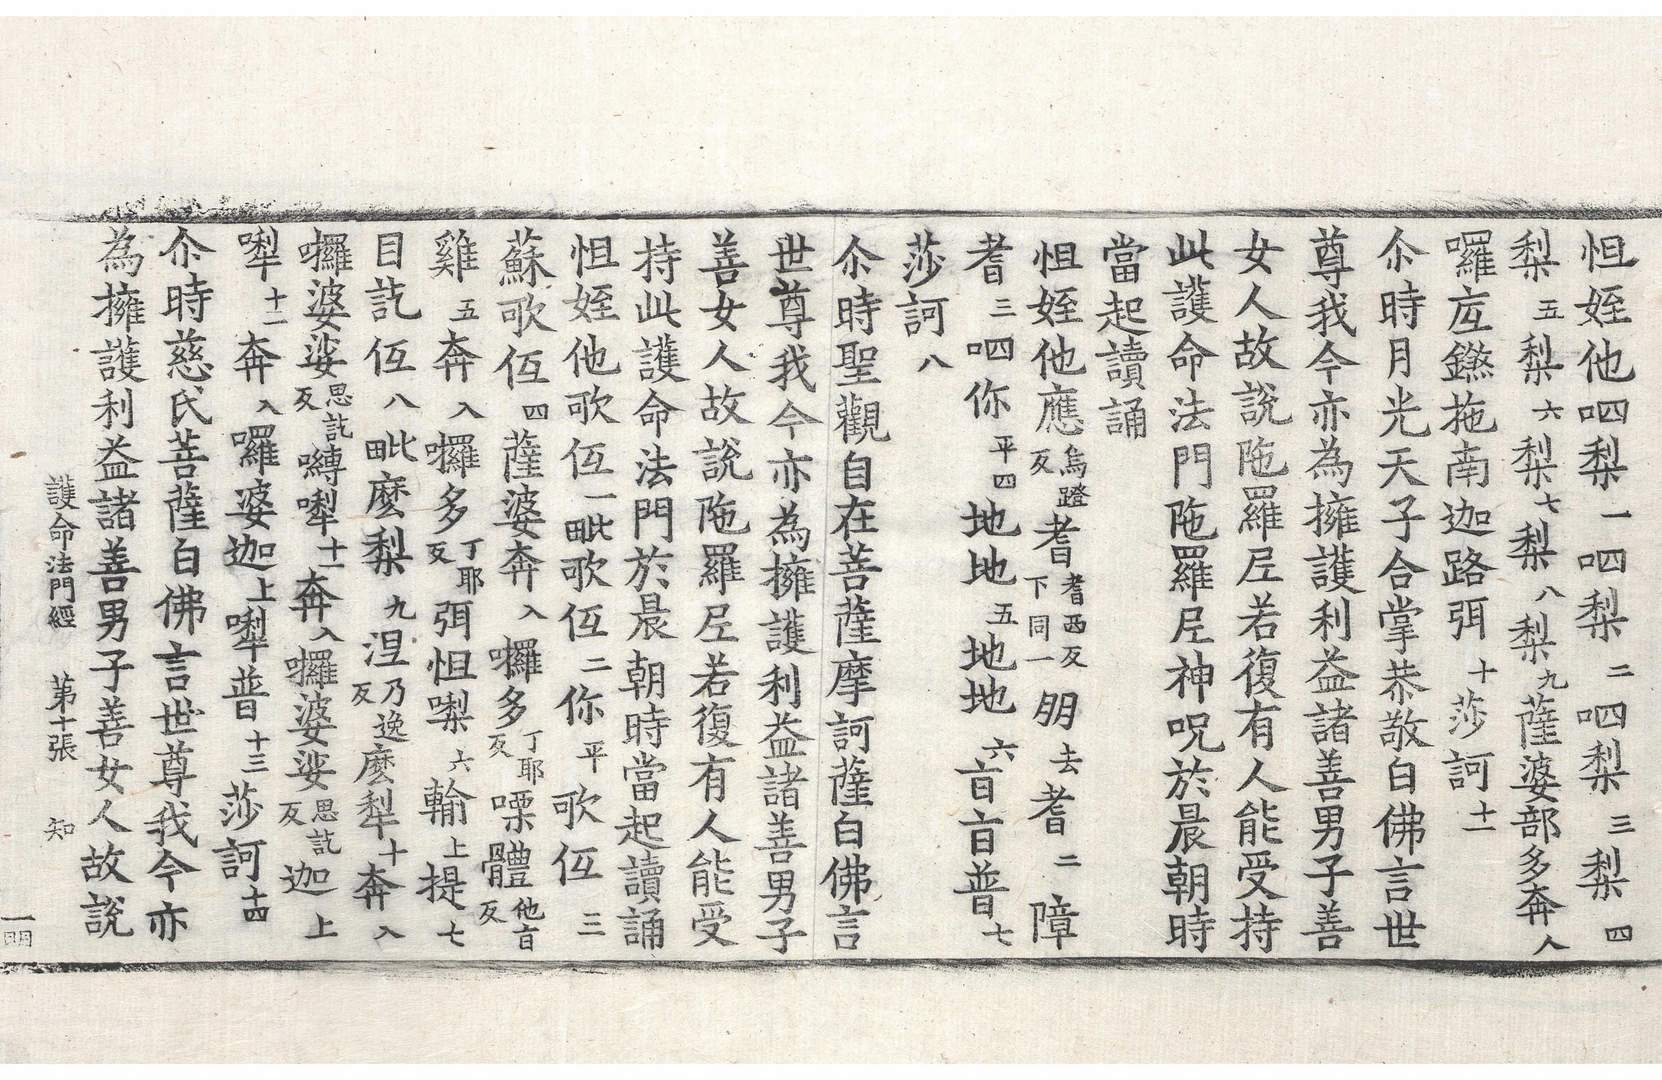 怛姪他呬梨一呬梨二呬梨三梨四
梨五梨六梨七梨八梨九薩婆部多奔入
囉㡳鑯拖南迦路弭十莎訶十一
尒時月光天子合掌恭敬白佛言世
尊我今亦為擁護利益諸善男子善
女人故說陁羅尼若復有人能受持
此護命法門陁羅尼神呪於晨朝時
當起讀誦
怛姪他應烏蹬反耆耆西反下同一朋去耆二障
耆三呬你平四地地五地地六盲盲普七
莎訶八
尒時聖觀自在菩薩摩訶薩白佛言
世尊我今亦為擁護利益諸善男子
善女人故說陁羅尼若復有人能受
持此護命法門於晨朝時當起讀誦
怛姪他歌仾一毗歌仾二你平歌仾三
蘇歌仾四薩婆奔入囉多丁耶反㗚體他盲反
雞五奔入囉多丁耶反弭怛㗚六輸上提七
目訖仾八毗麼梨九涅乃逸反麼犁十奔入
囉婆娑思訖反嚩㘑十一奔入囉婆娑思訖反迦上
㘑十二奔入囉婆迦上㘑普十三莎訶十四
尒時慈氏菩薩白佛言世尊我今亦
為擁護利益諸善男子善女人故說
護命法門經　第十張　知